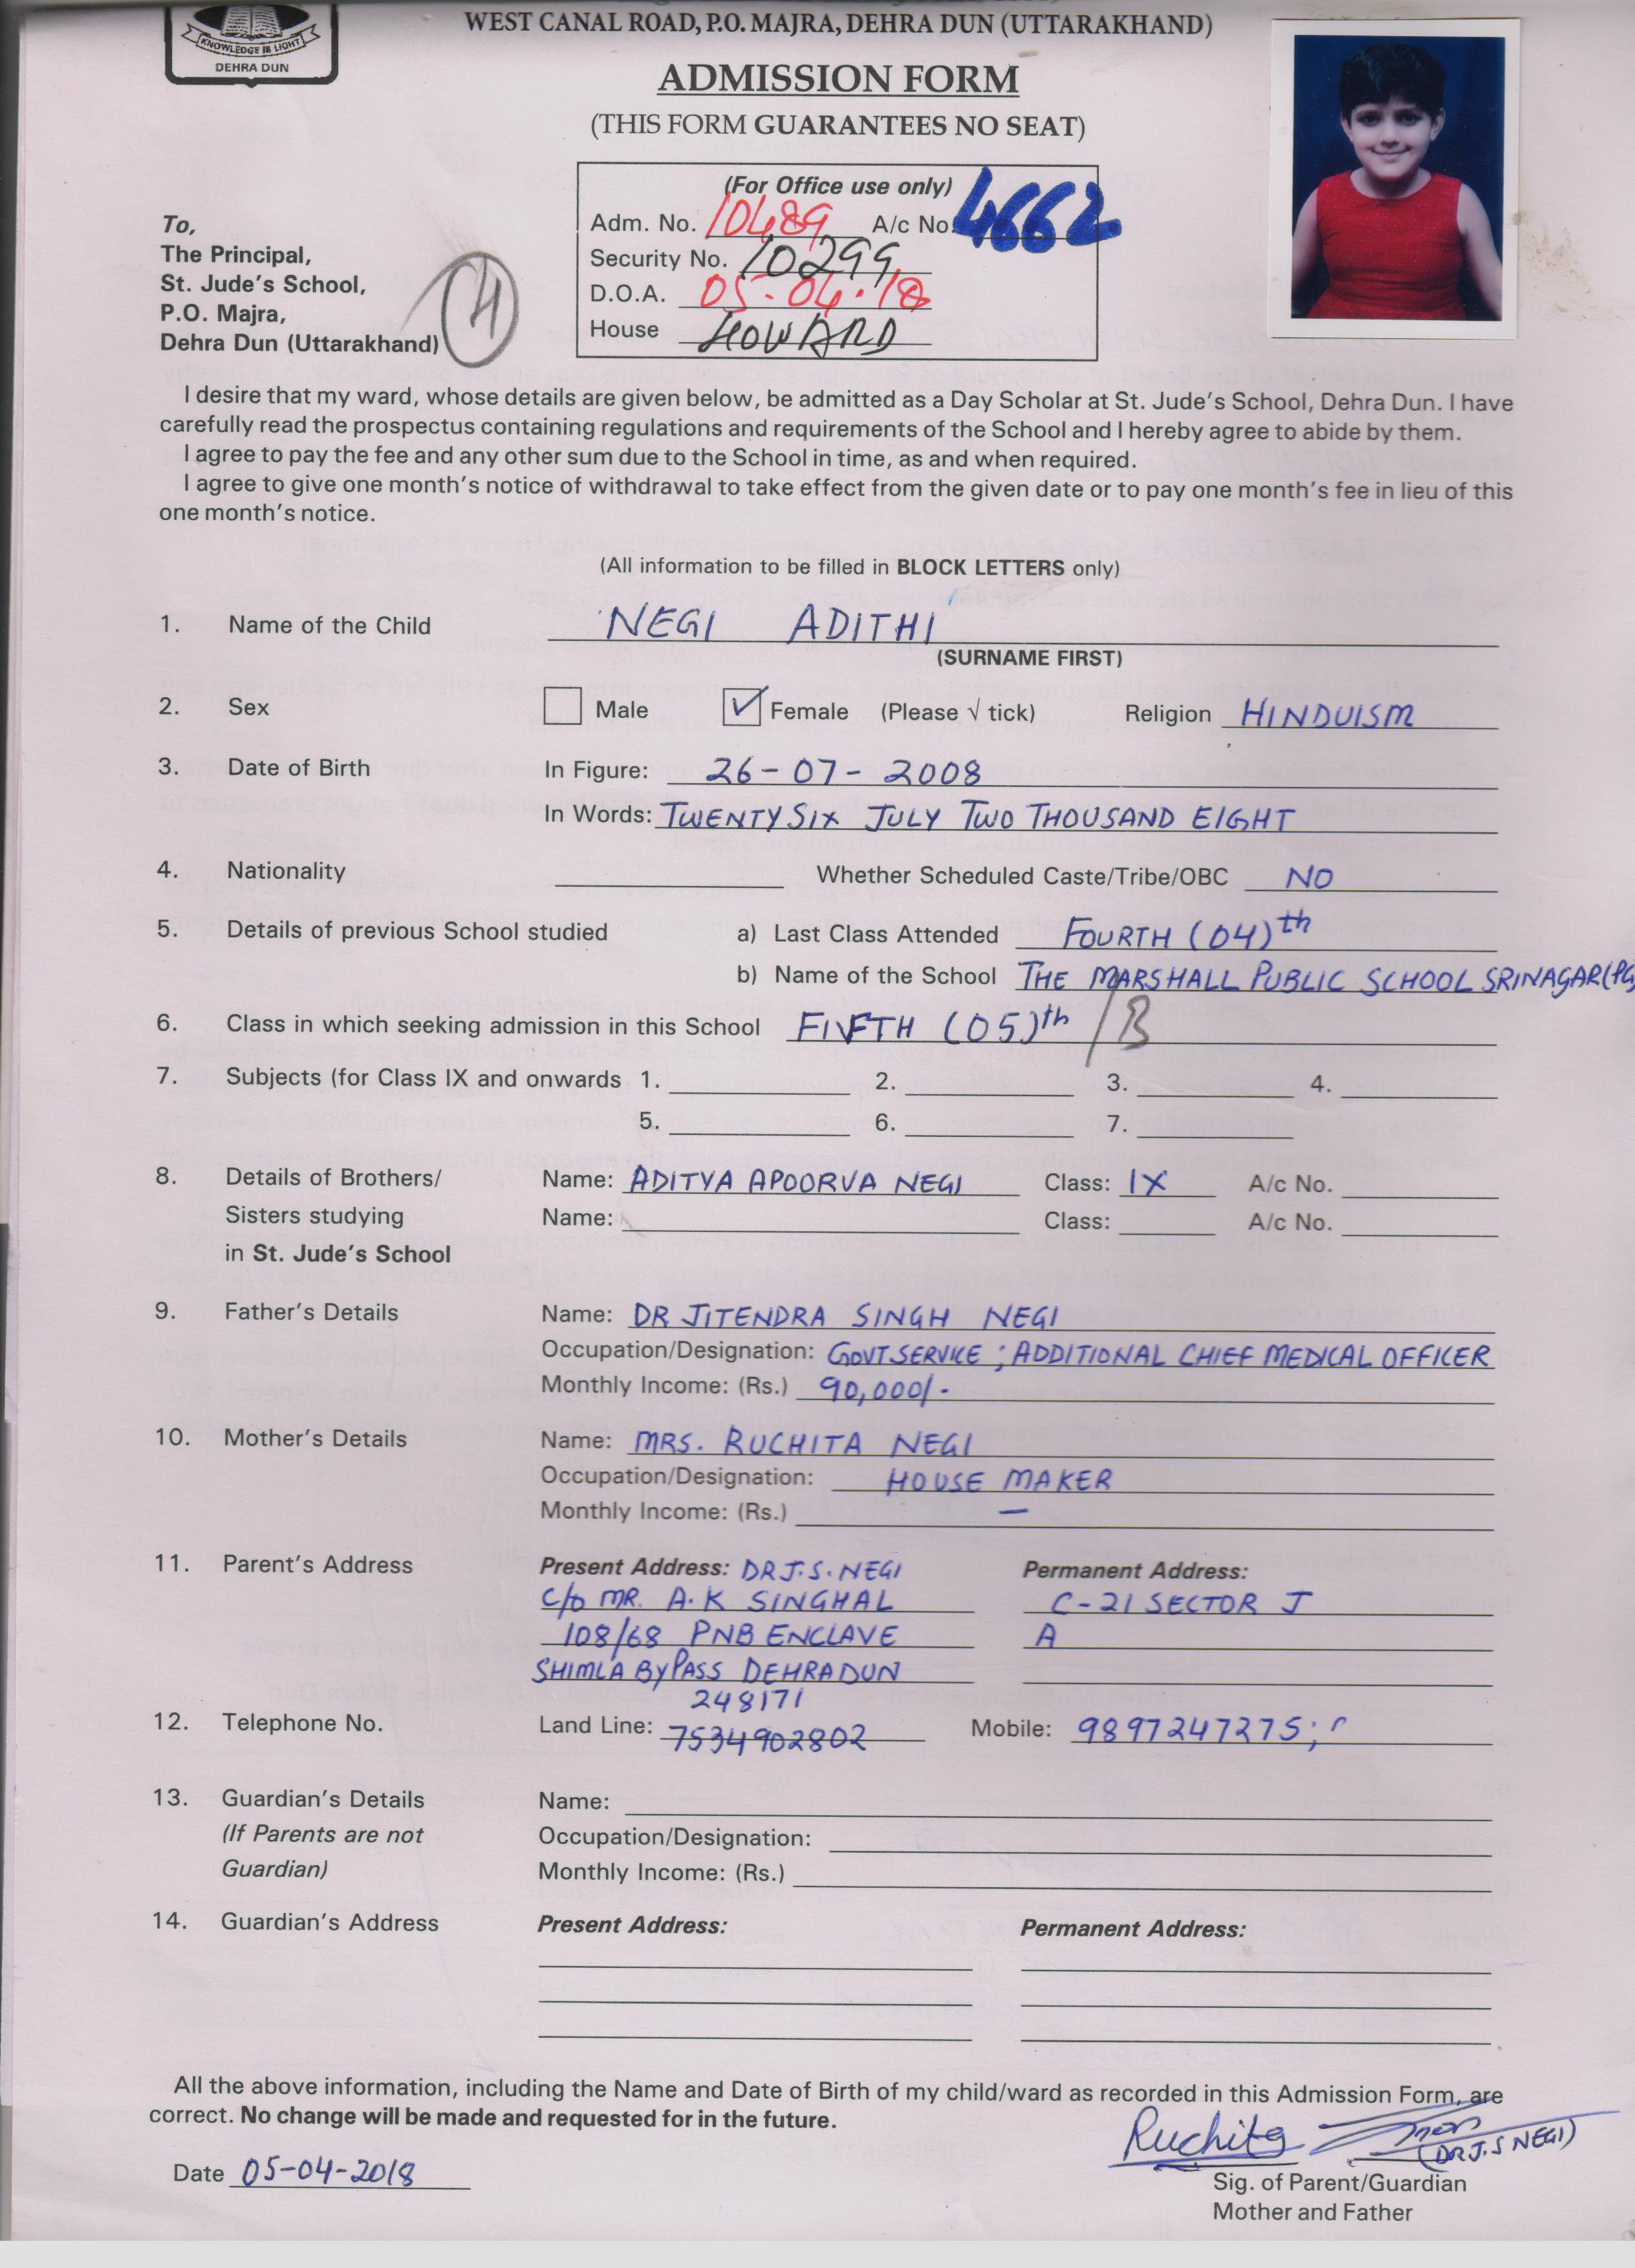 WEST CANAL ROAD, P.O. MAJRA, DEHRA DUN (UTTARAKHAND)
KNOWLEDGE IS LIGHT
DEHRA DUN
ADMISSION FORM
(THIS FORM GUARANTEES NO SEAT)
(For Office use only)
Adm. No. 10489 A/c No. 4662
Security No. 10299
D.O.A. 05-04-18
House HOWARD
To,
The Principal,
St. Jude's School,
P.O. Majra,
Dehra Dun (Uttarakhand)
4
I desire that my ward, whose details are given below, be admitted as a Day Scholar at St. Jude's School, Dehra Dun. I have
carefully read the prospectus containing regulations and requirements of the School and I hereby agree to abide by them.
I agree to pay the fee and any other sum due to the School in time, as and when required.
I agree to give one month's notice of withdrawal to take effect from the given date or to pay one month's fee in lieu of this
one month's notice.
(All information to be filled in BLOCK LETTERS only)
1. Name of the Child NEGI ADITHI
(SURNAME FIRST)
2. Sex Male ✓ Female (Please √ tick) Religion HINDUISM
3. Date of Birth In Figure: 26-07-2008
In Words: TWENTY SIX JULY TWO THOUSAND EIGHT
4. Nationality Whether Scheduled Caste/Tribe/OBC NO
5. Details of previous School studied a) Last Class Attended FOURTH (04)th
b) Name of the School THE MARSHALL PUBLIC SCHOOL SRINAGAR (PG
6. Class in which seeking admission in this School FIFTH (05)th /B
7. Subjects (for Class IX and onwards 1. 2. 3. 4.
5. 6. 7.
8. Details of Brothers/ Name: ADITYA APOORVA NEGI Class: IX A/c No.
Sisters studying Name: Class: A/c No.
in St. Jude's School
9. Father's Details Name: DR JITENDRA SINGH NEGI
Occupation/Designation: GOVT SERVICE ; ADDITIONAL CHIEF MEDICAL OFFICER
Monthly Income: (Rs.) 90,000/-
10. Mother's Details Name: MRS. RUCHITA NEGI
Occupation/Designation: HOUSE MAKER
Monthly Income: (Rs.) —
11. Parent's Address Present Address: DR J.S. NEGI Permanent Address:
C/o MR. A.K SINGHAL C-21 SECTOR J
108/68 PNB ENCLAVE A
SHIMLA BYPASS DEHRADUN
248171
12. Telephone No. Land Line: 7534902802 Mobile: 9897247275;
13. Guardian's Details Name:
(If Parents are not Occupation/Designation:
Guardian) Monthly Income: (Rs.)
14. Guardian's Address Present Address: Permanent Address:
All the above information, including the Name and Date of Birth of my child/ward as recorded in this Admission Form, are
correct. No change will be made and requested for in the future.
Ruchita (DR J.S NEGI)
Date 05-04-2018
Sig. of Parent/Guardian
Mother and Father